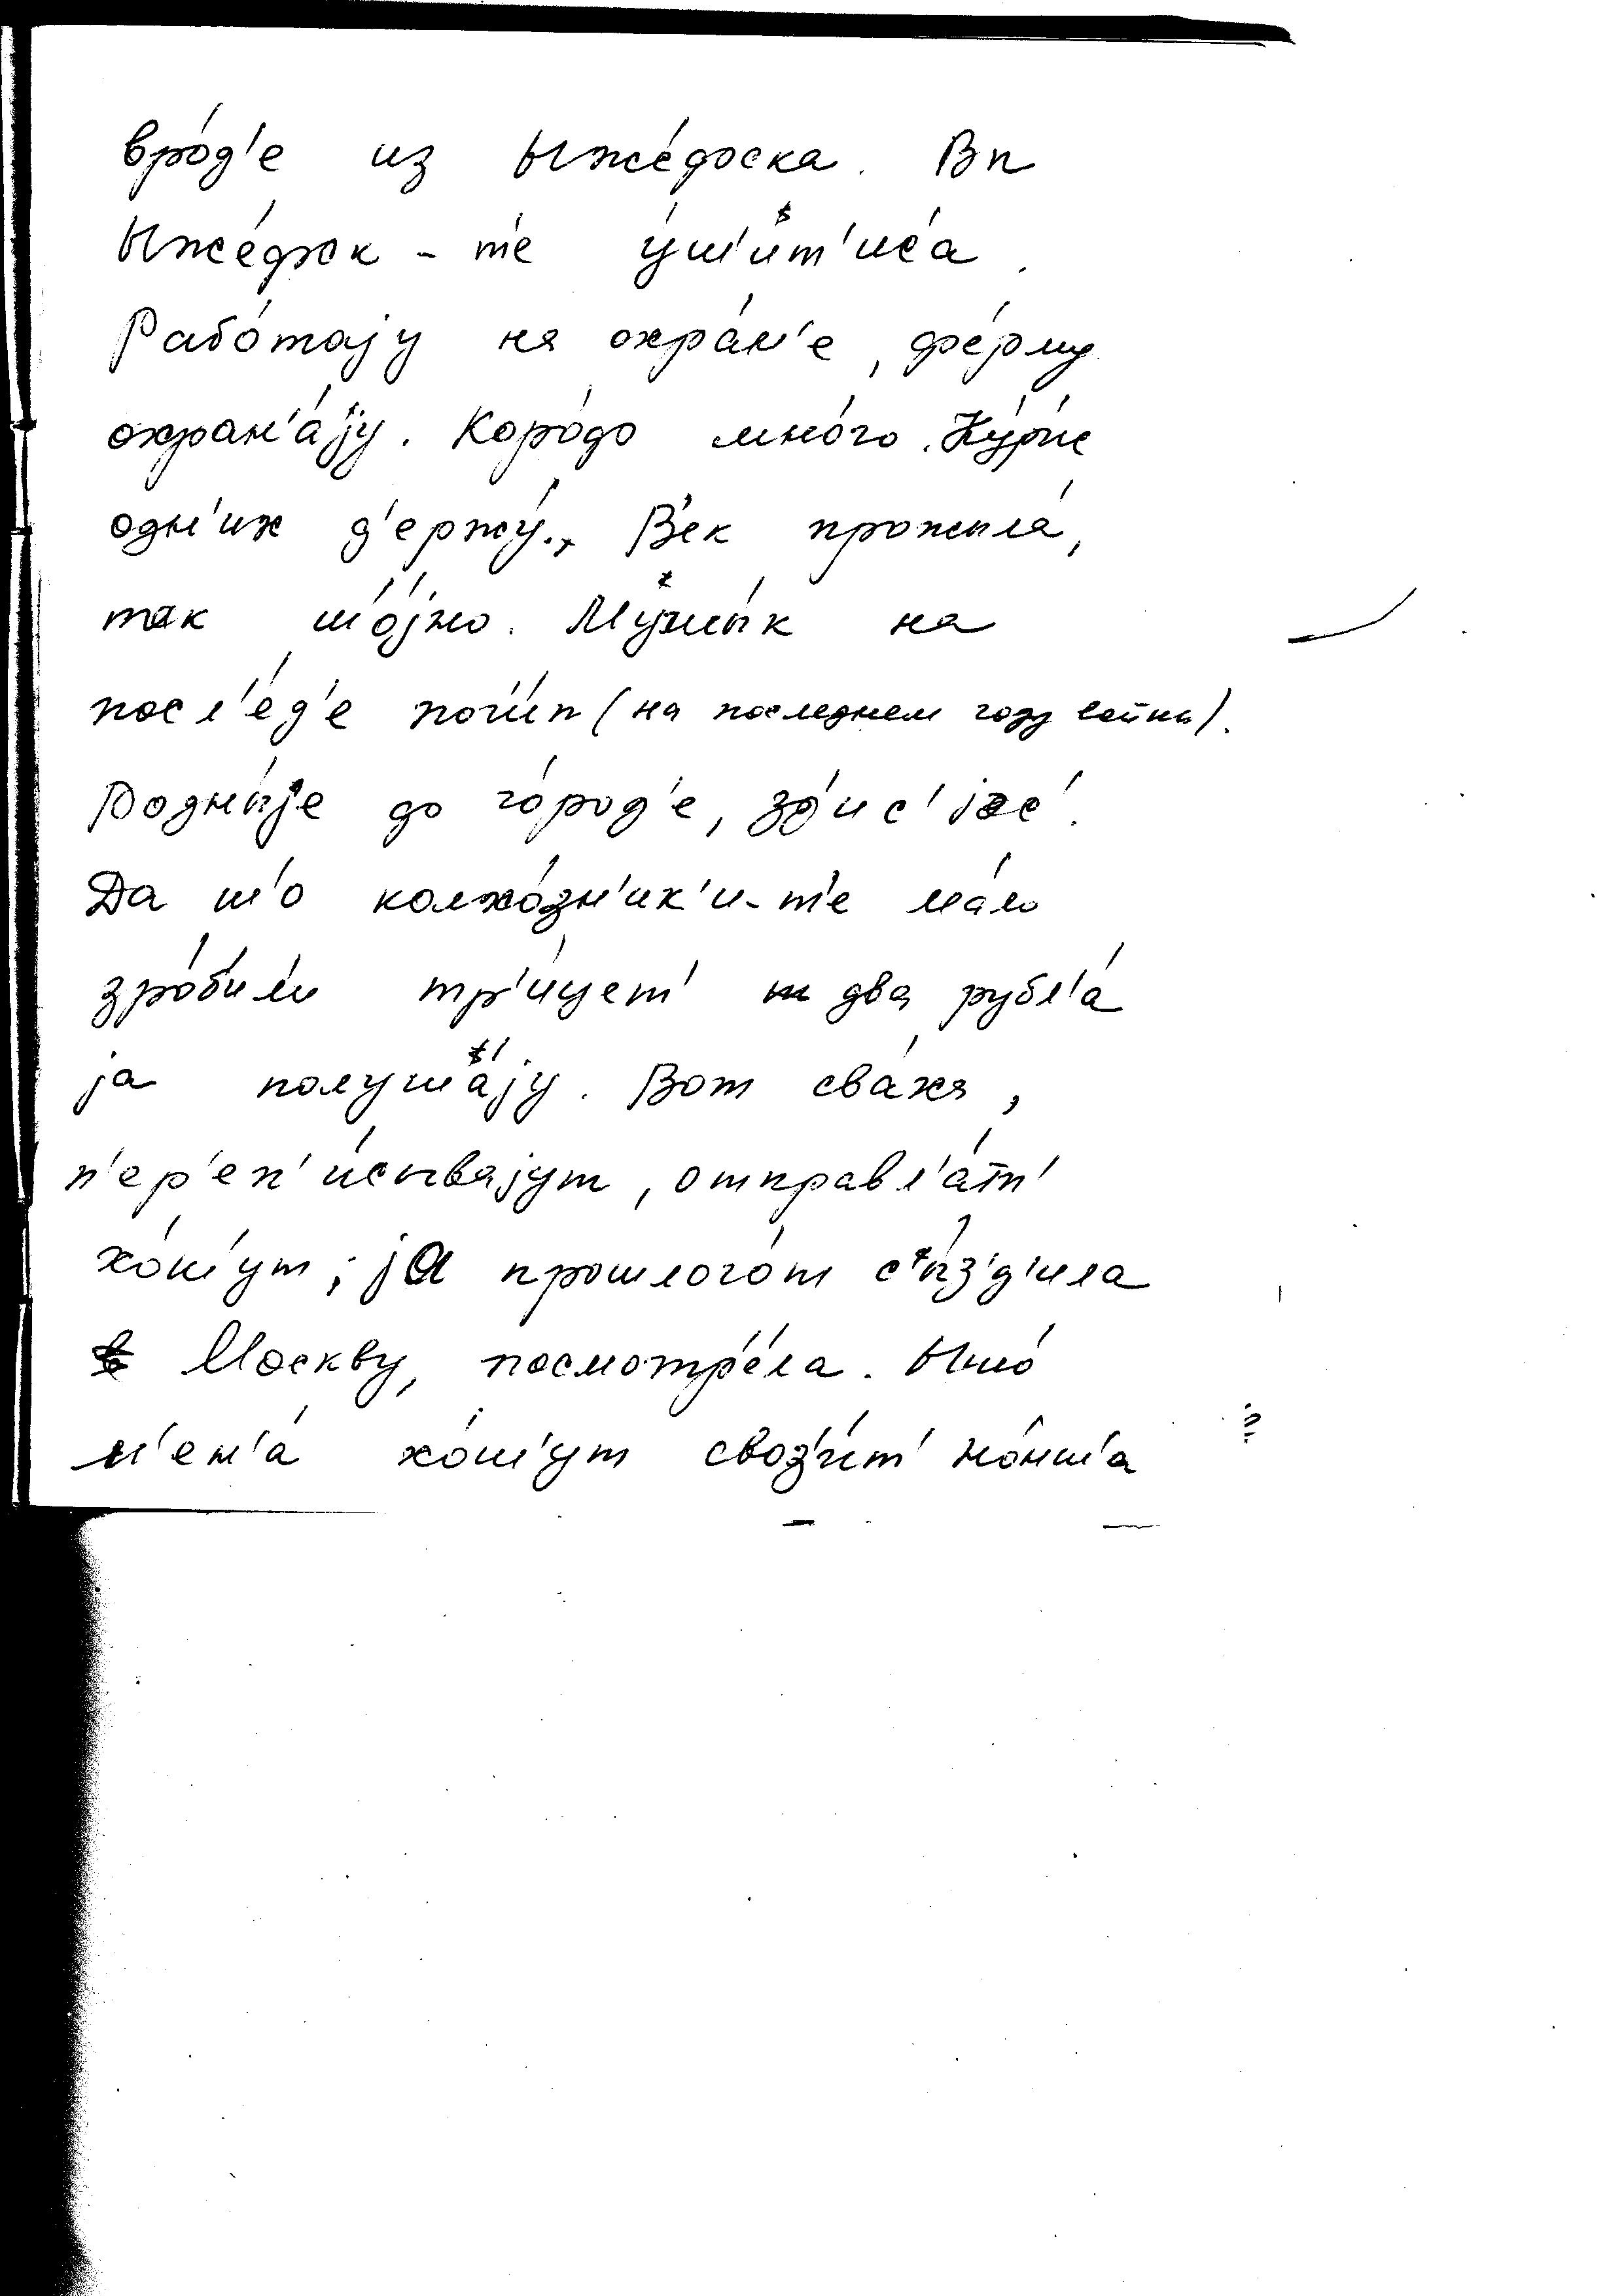 вро́д'е из Ыже́воска. Вп
Ыже́вск - т'е у́ш'ит'иса.
Рабо́тајy на охра́н'е, фе́рму
охран'а́јy. Коро́во мно́го. Ку́риц
одн'их д'ержу́. В'ек прожыла́,
так ш'о́јно. Мужы́к на
посл'е́д'е поги́п (на последнем году войны).
Родны́је до го́род'е, зд'ис' јес'.
Да ш'о колхо́зн'ик'и-т'е ма́ло
зро́били тр'и́цет' два рубл'а́
ја полуш'а́јy. Вот сва́ха,
п'ер'еп'и́сывајут, отправл'а́т'
хо́ш'ут; ја прошлого́т с'йз'д'ила
в Москву, посмотре́ла. Ышо́
м'ен'а́ хо́ш'ут своз'и́т' но́нш'а
?